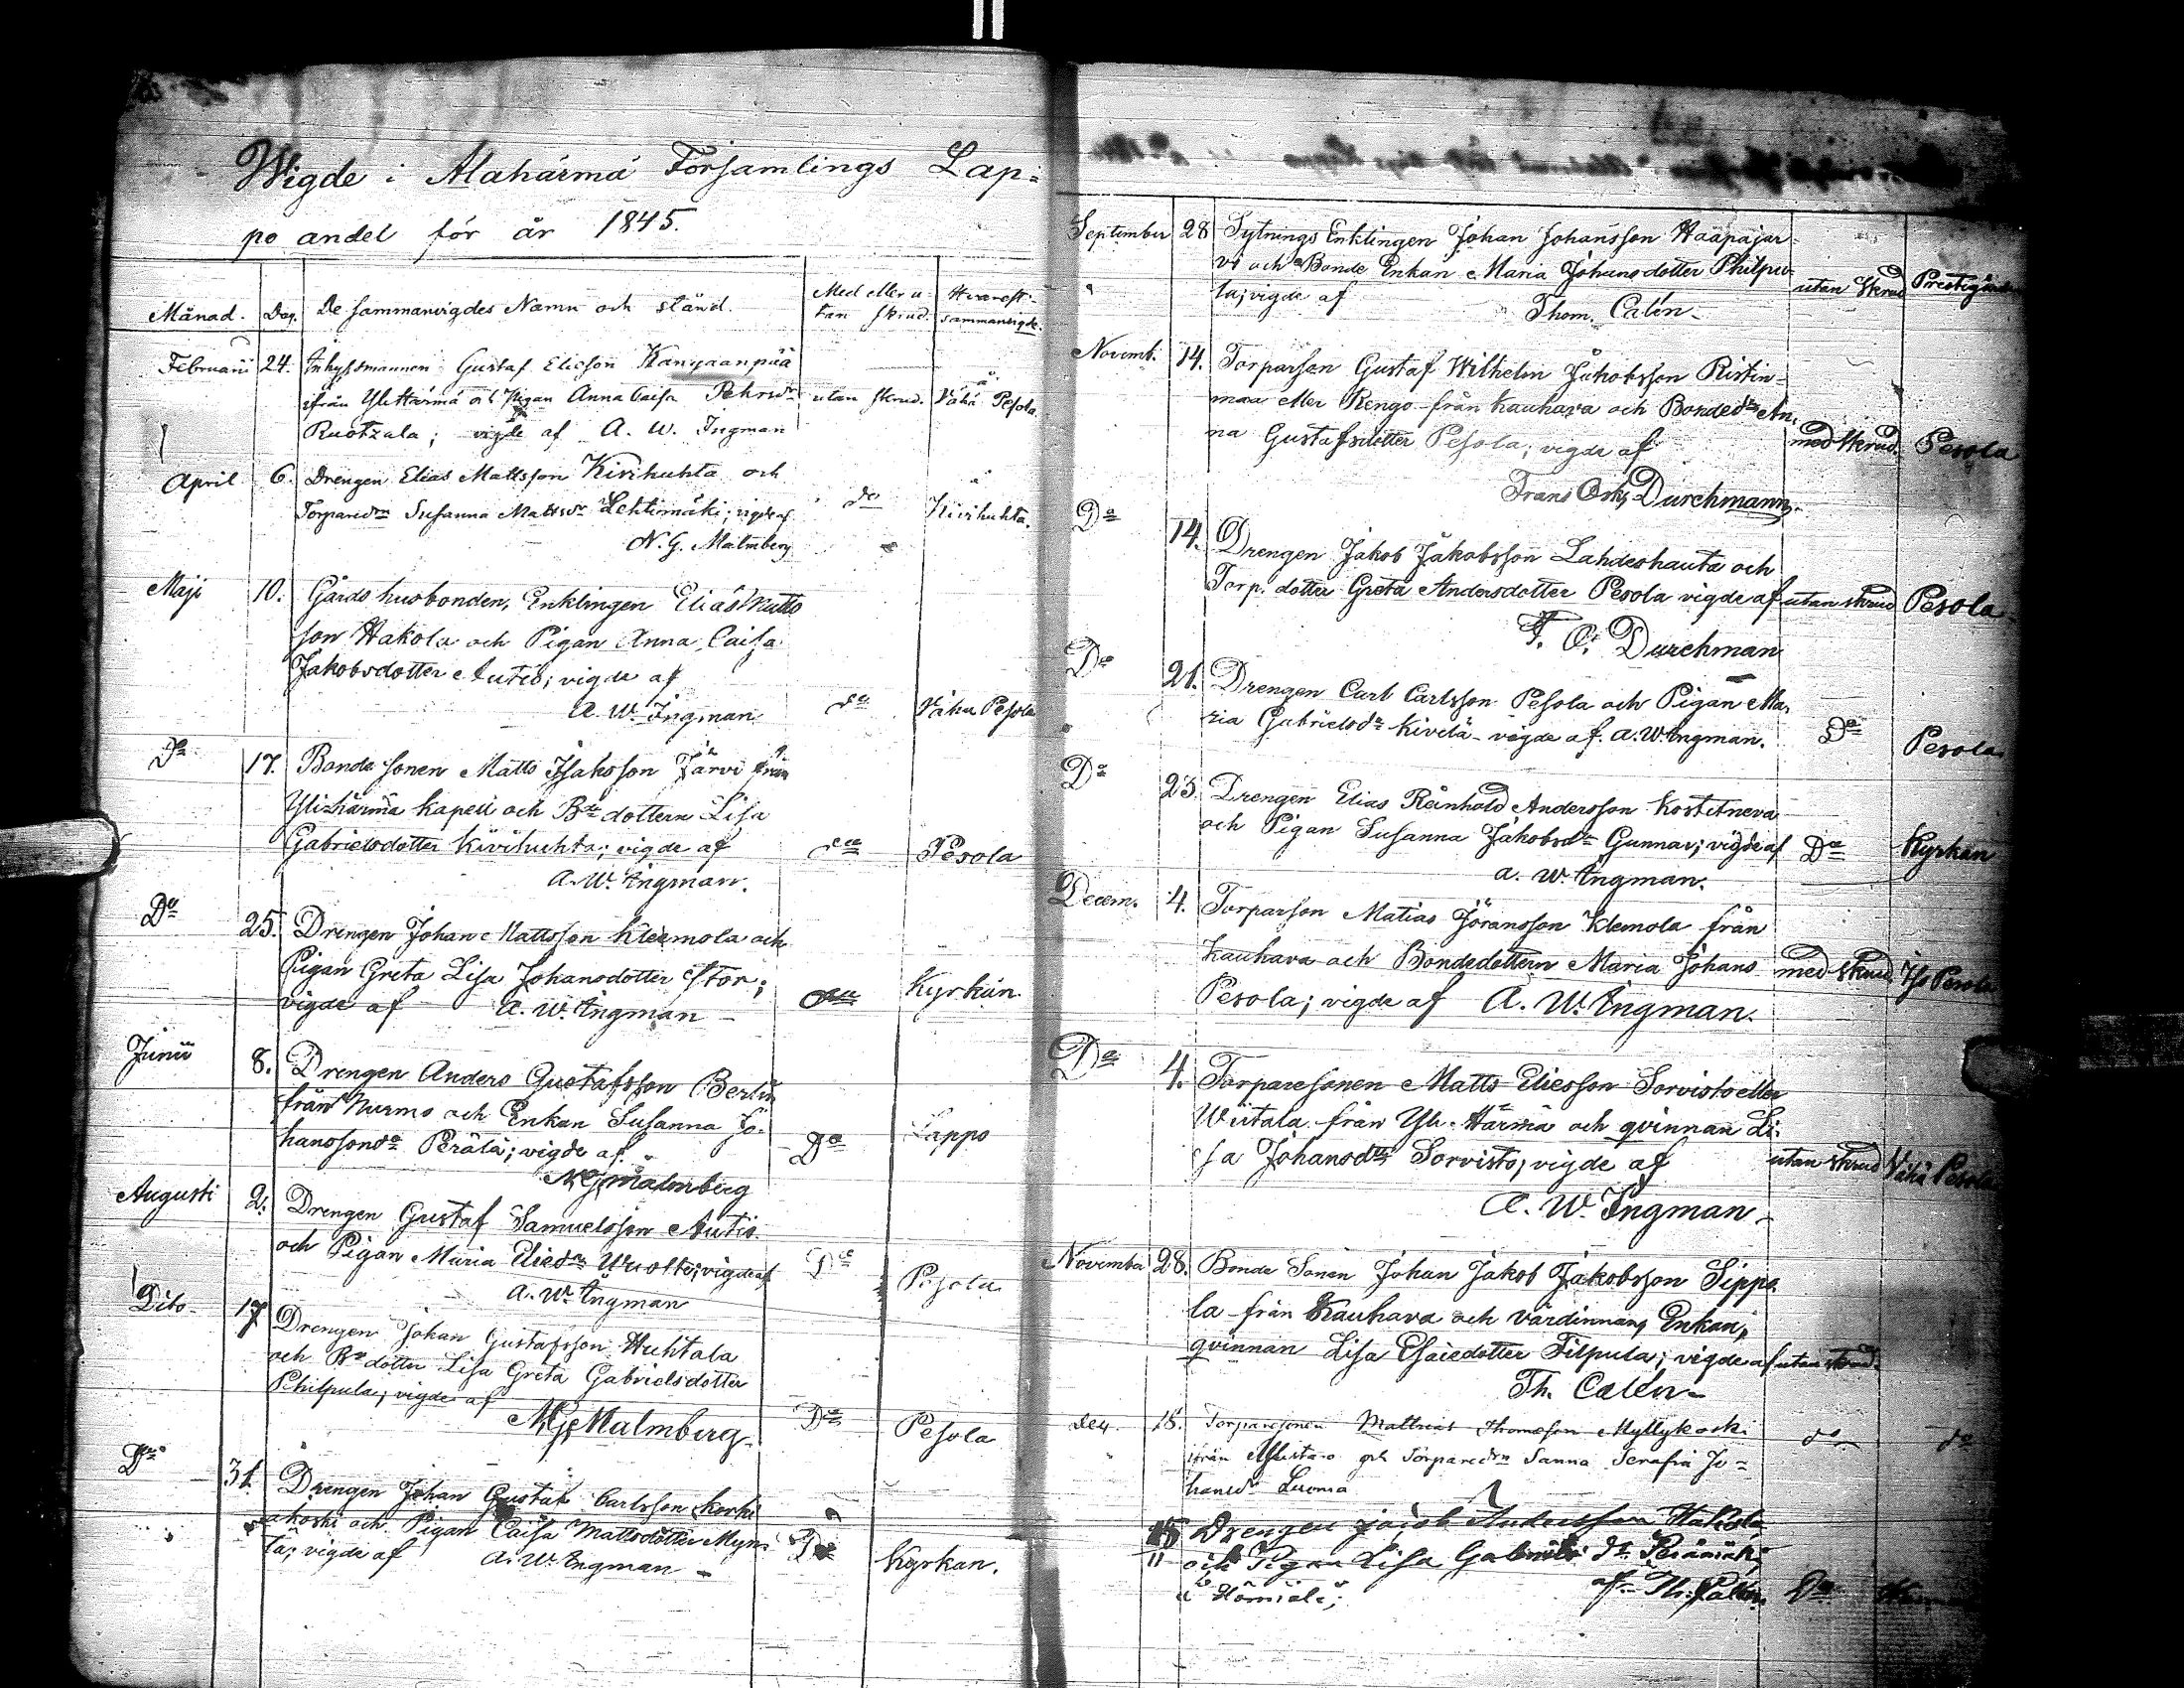 Wigde i Alahärmä Församlings Lap-
po andel för år 1845.
Månad. Dag. De sammanvigdes Namn och stånd. Med eller u- Hvarest
tan skrud. sammanvigde.
Februarii 24. Inhyssmannen Gustaf Elieson Kangaanpää
ifrån Ylihärmä och Pigan Anna Caisa Pehrsdr utan skrud. Vähä Pesola.
Ruotzala; vigde af A. W. Ingman
April 6. Drengen Elias Mattsson Kivihuhta och
Torparedr Susanna Mattsdr Lehtimäki; vigde af do Kivihuhta.
N. G. Malmberg
Maji 10. Gårds husbonden, Enklingen Elias Matts
son Hakola och Pigan Anna Caisa
Jakobsdotter Autio; vigde af
A. W. Ingman do Vähä Pesola
Do 17. Bonde sonen Matts Isaksson Järvi från
Ylihärmä kapell och Bde dottern Lisa
Gabrielsdotter Kivihuhta; vigde af do Pesola
A. W. Ingman.
Do 25. Drengen Johan Mattsson Kleemola och
Pigan Greta Lisa Johansdotter Stor;
vigde af A. W. Ingman Do Kyrkan.
Junii 8. Drengen Anders Gustafsson Berlin
från Nurmo och Enkan Susanna Jo-
hanssondr Perälä; vigde af Do Lappo
N. G. Malmberg
Augusti 2. Drengen Gustaf Samuelsson Autio
och Pigan Maria Eliedr Wuolte; vigde af Do Pesola
A. W. Ingman
Dito 17 Drengen Johan Gustafsson Huhtala
och Bde dotter Lisa Greta Gabrielsdotter
Philpula; vigde af
N. G. Malmberg. Do Pesola
Do 31. Drengen Johan Gustaf Carlsson Korkia
akoski och Pigan Caisa Mattsdotter Myn-
tä; vigde af A. W. Ingman Do Kyrkan.
September 28 Sytnings Enklingen Johan Johansson Haapajär-
vi och Bonde Enkan Maria Johansdotter Philpu- utan Skrud Prestgården
la; vigde af Thom. Calén
Novemb. 14. Torparson Gustaf Wilhelm Jakobsson Ristin-
maa eller Rengo från Kauhava och Bondedr An-
na Gustafsdotter Pesola; vigde af med skrud. Pesola
Frans Osk. Durchmann.
Do 14. Drengen Jakob Jakobsson Lahdeshauta och
Torp. dotter Greta Andersdotter Pesola vigde af utan skrud Pesola
F. O. Durchman
Do 21. Drengen Carl Carlsson Pesola och Pigan Ma-
ria Gabrielsdr Kivelä vigde af. A. W. Ingman. Do Pesola
Do 23. Drengen Elias Reinhold Andersson Kostetneva
och Pigan Susanna Jakobsdr Gunnar; vigde af Do Kyrkan
A. W. Ingman.
Decem. 4. Torparson Matias Jöransson Klemola från
Kauhava och Bondedottern Maria Johans med skrud Iso Pesola
Pesola; vigde af A. W. Ingman.
Do 4. Torparesonen Matts Eliesson Sorvisto eller
Wiitala från Yli-Härmä och qvinnan Li-
sa Johansdr Sorvisto; vigde af utan skrud Vähä Pesola
A. W. Ingman
November 28. Bonde Sonen Johan Jakob Jakobsson Sippo-
la från Kauhava och värdinnan, Enkan,
qvinnan Lisa Esaiedotter Filpula; vigde af utan skrud
Th. Calén
15. Torparesonen Matthias Thomasson Myllykoski do do
ifrån och Torparedtr Sanna Serafia Jo-
hansdr Luoma
15 Drengen Jacob Andersson Hakola
och Pigan Lisa Gabriels dr Perämäki
af Th. Calén Do